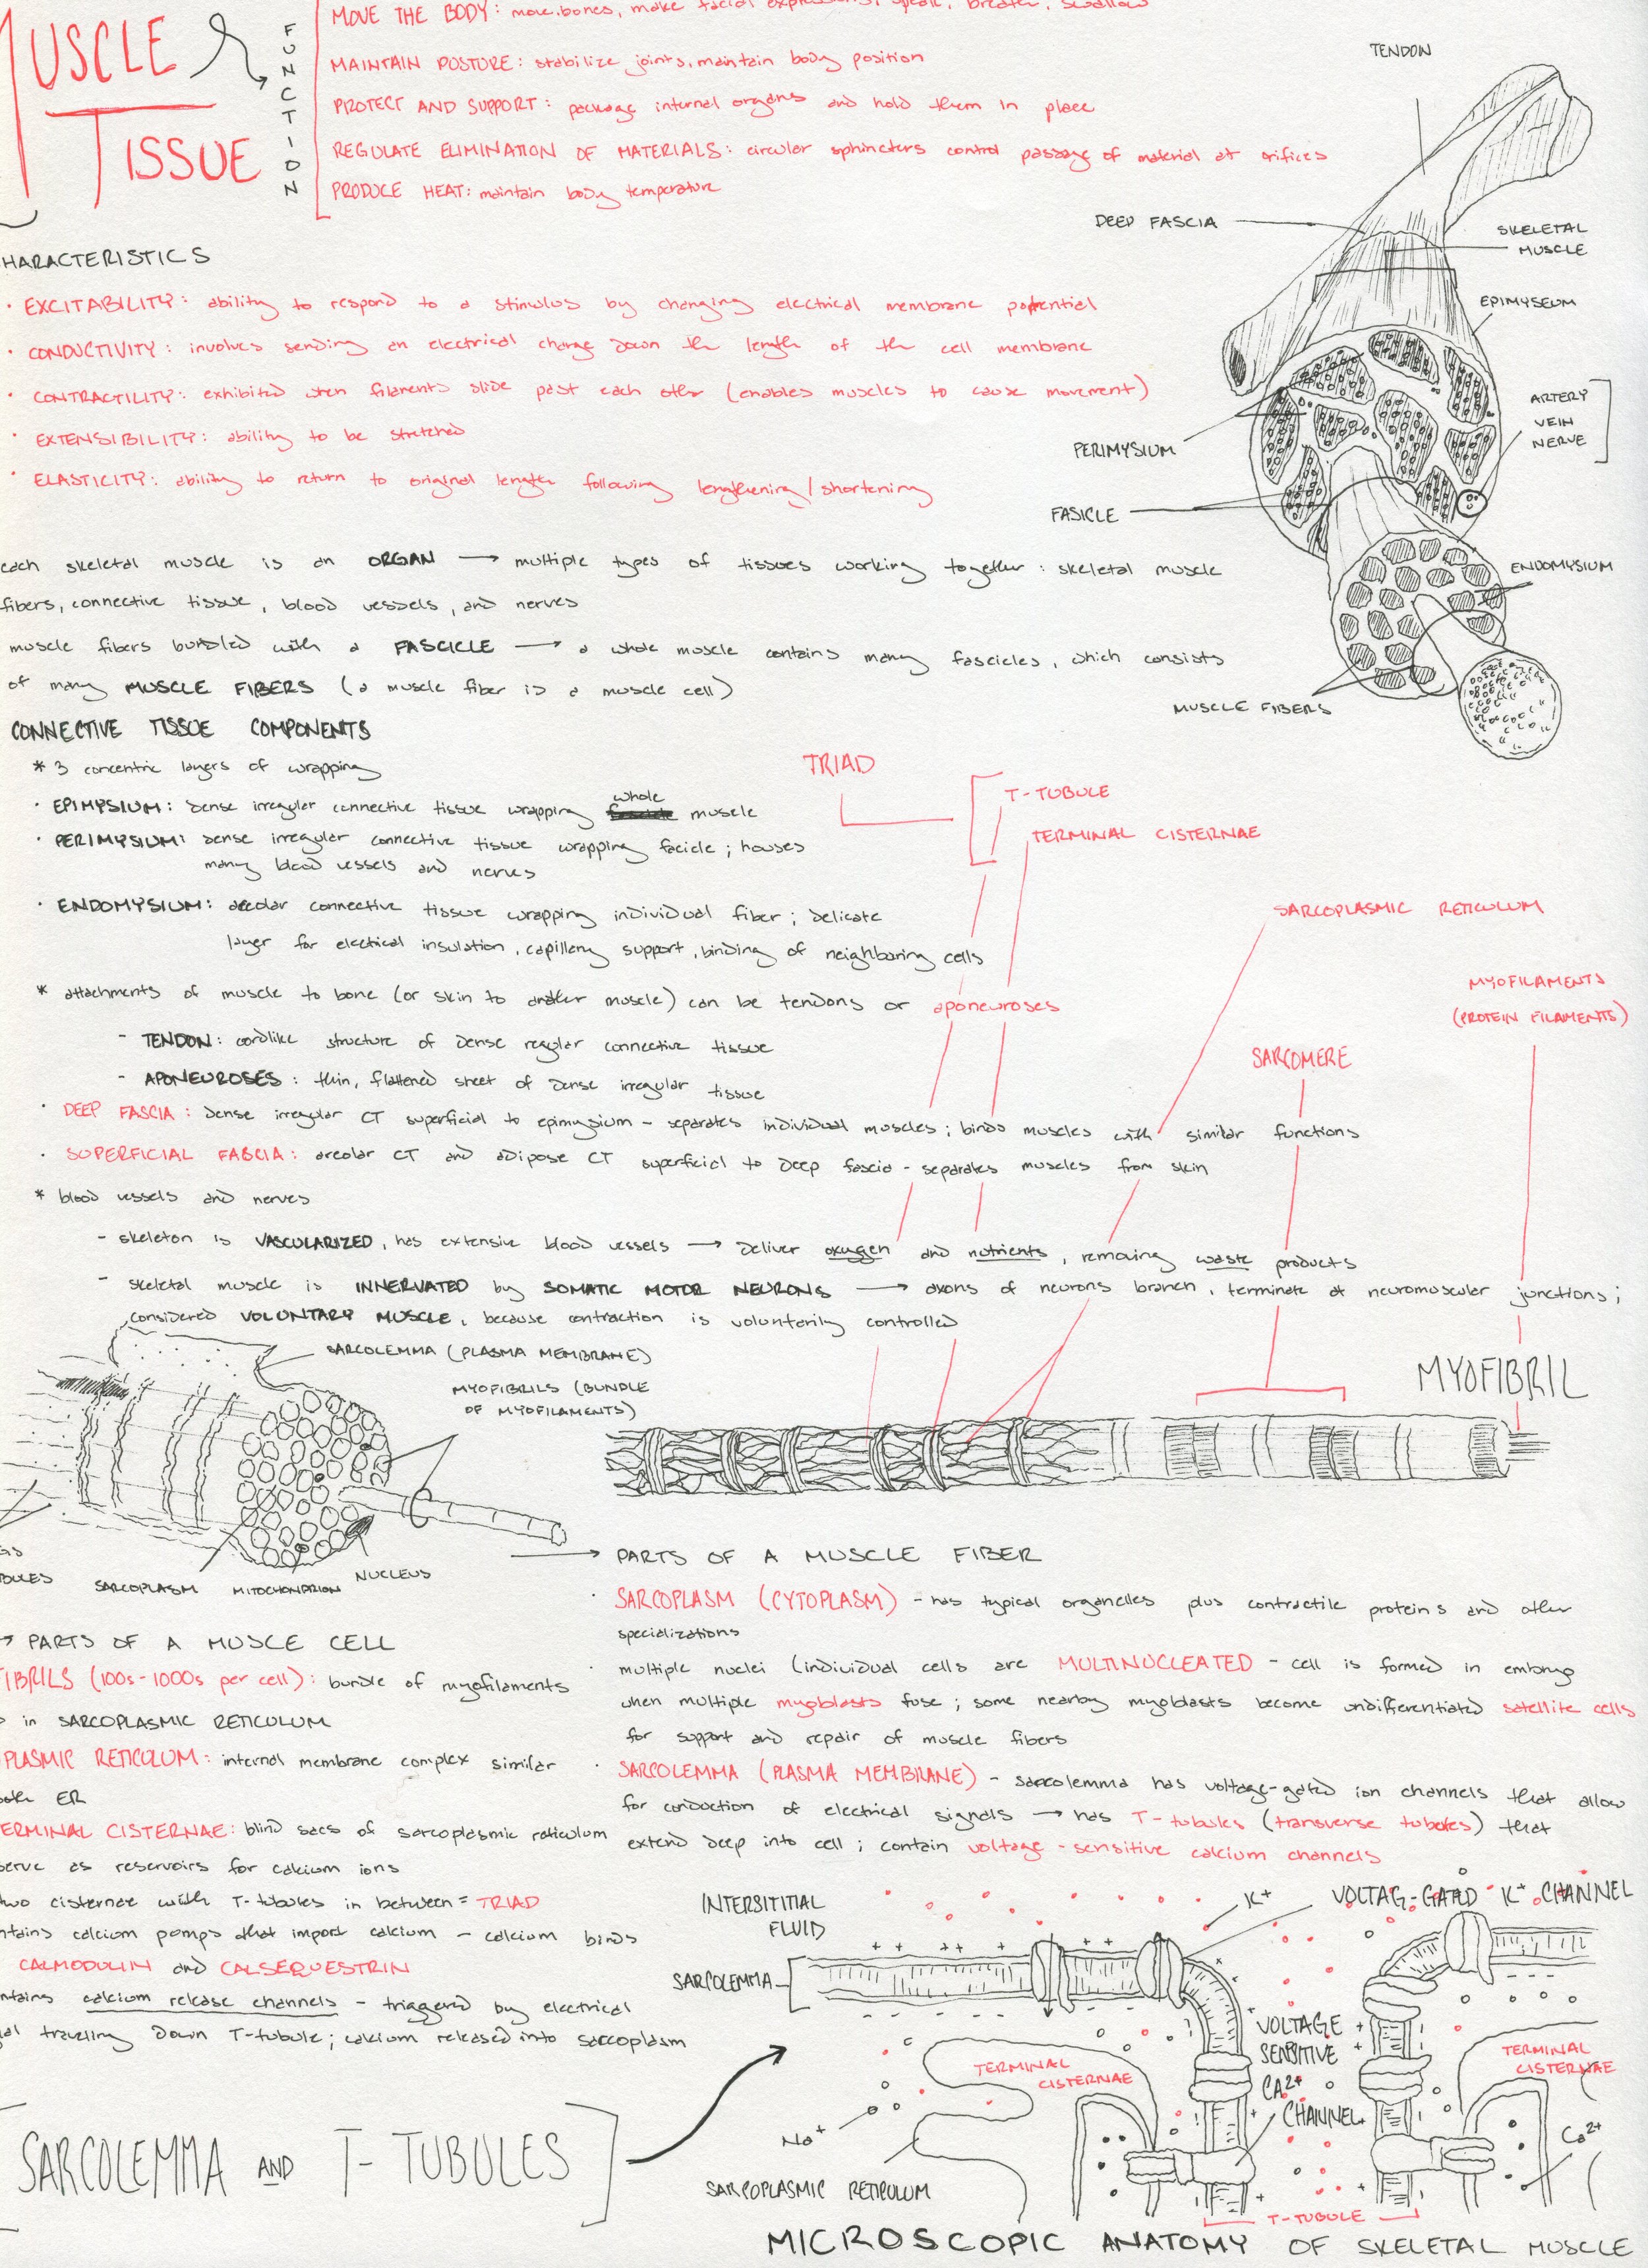 MUSCLE
TISSUE
FUNCTION
MOVE THE BODY: move bones, make facial expressions, speak, breathe, swallow
MAINTAIN POSTURE: stabilize joints, maintain body position
PROTECT AND SUPPORT: package internal organs and hold them in place
REGULATE ELIMINATION OF MATERIALS: circular sphincters control passage of material at orifices
PRODUCE HEAT: maintain body temperature
HARACTERISTICS
· EXCITABILITY: ability to respond to a stimulus by changing electrical membrane potential
· CONDUCTIVITY: involves sending an electrical charge down the length of the cell membrane
· CONTRACTILITY: exhibited when filaments slide past each other (enables muscles to cause movement)
· EXTENSIBILITY: ability to be stretched
· ELASTICITY: ability to return to original length following lengthening/shortening
each skeletal muscle is an ORGAN → multiple types of tissues working together: skeletal muscle
fibers, connective tissue, blood vessels, and nerves
muscle fibers bundled with a FASCICLE → a whole muscle contains many fascicles, which consists
of many MUSCLE FIBERS (a muscle fiber is a muscle cell)
TENDON
DEEP FASCIA
SKELETAL
MUSCLE
EPIMYSEUM
ARTERY
VEIN
NERVE
PERIMYSIUM
FASICLE
ENDOMYSIUM
MUSCLE FIBERS
CONNECTIVE TISSUE COMPONENTS
* 3 concentric layers of wrapping
· EPIMYSIUM: dense irregular connective tissue wrapping whole muscle
· PERIMYSIUM: dense irregular connective tissue wrapping facicle; houses
many blood vessels and nerves
· ENDOMYSIUM: areolar connective tissue wrapping individual fiber; delicate
layer for electical insulation, capillary support, binding of neighboring cells
* attachments of muscle to bone (or skin to another muscle) can be tendons or aponeuroses
- TENDON: cordlike structure of dense regular connective tissue
- APONEUROSES: thin, flattened sheet of dense irregular tissue
· DEEP FASCIA: dense irregular CT superficial to epimysium - separates individual muscles; binds muscles with similar functions
· SUPERFICIAL FASCIA: areolar CT and adipose CT superficial to deep fascia - separates muscles from skin
* blood vessels and nerves
- skeleton is VASCULARIZED, has extensive blood vessels → deliver oxygen and nutrients, removing waste products
- skeletal muscle is INNERVATED by SOMATIC MOTOR NEURONS → axons of neurons branch, terminate at neuromuscular junctions;
considered VOLUNTARY MUSCLE, because contraction is voluntarily controlled
TRIAD
T-TUBULE
TERMINAL CISTERNAE
SARCOPLASMIC RETICULUM
MYOFILAMENTS
(PROTEIN FILAMENTS)
SARCOMERE
MYOFIBRIL
SARCOLEMMA (PLASMA MEMBRANE)
MYOFIBRILS (BUNDLE
OF MYOFILAMENTS)
BULES
SARCOPLASM
MITOCHONDRION
NUCLEUS
→ PARTS OF A MUSCLE CELL
IBRILS (100s-1000s per cell): bundle of myofilaments
in SARCOPLASMIC RETICULUM
PLASMIC RETICULUM: internal membrane complex similar
ER
ERMINAL CISTERNAE: blind sacs of sarcoplasmic reticulum
erve as reservoirs for calcium ions
two cisternae with T-tubules in between = TRIAD
ntains calcium pumps that import calcium - calcium binds
CALMODULIN and CALSEQUESTRIN
ntains calcium release channels - triggered by electrical
al traveling down T-tubule; calcium released into sarcoplasm
→ PARTS OF A MUSCLE FIBER
· SARCOPLASM (CYTOPLASM) - has typical organelles plus contractile proteins and other
specializations
· multiple nuclei (individual cells are MULTINUCLEATED - cell is formed in embryo
when multiple myoblasts fuse; some nearby myoblasts become undifferentiated satellite cells
for support and repair of muscle fibers
· SARCOLEMMA (PLASMA MEMBRANE) - sarcolemma has voltage-gated ion channels that allow
for conduction of electrical signals → has T-tubules (transverse tubules) that
extend deep into cell; contain voltage-sensitive calcium channels
SARCOLEMMA AND T-TUBULES
INTERSITITIAL
FLUID
K+
VOLTAG-GATED K+ CHANNEL
SARCOLEMMA
VOLTAGE
SENSITIVE
CA2+
CHANNEL
TERMINAL
CISTERNAE
TERMINAL
CISTERNAE
Na+
Ca2+
SARCOPLASMIC RETICULUM
T-TUBULE
MICROSCOPIC ANATOMY OF SKELETAL MUSCLE